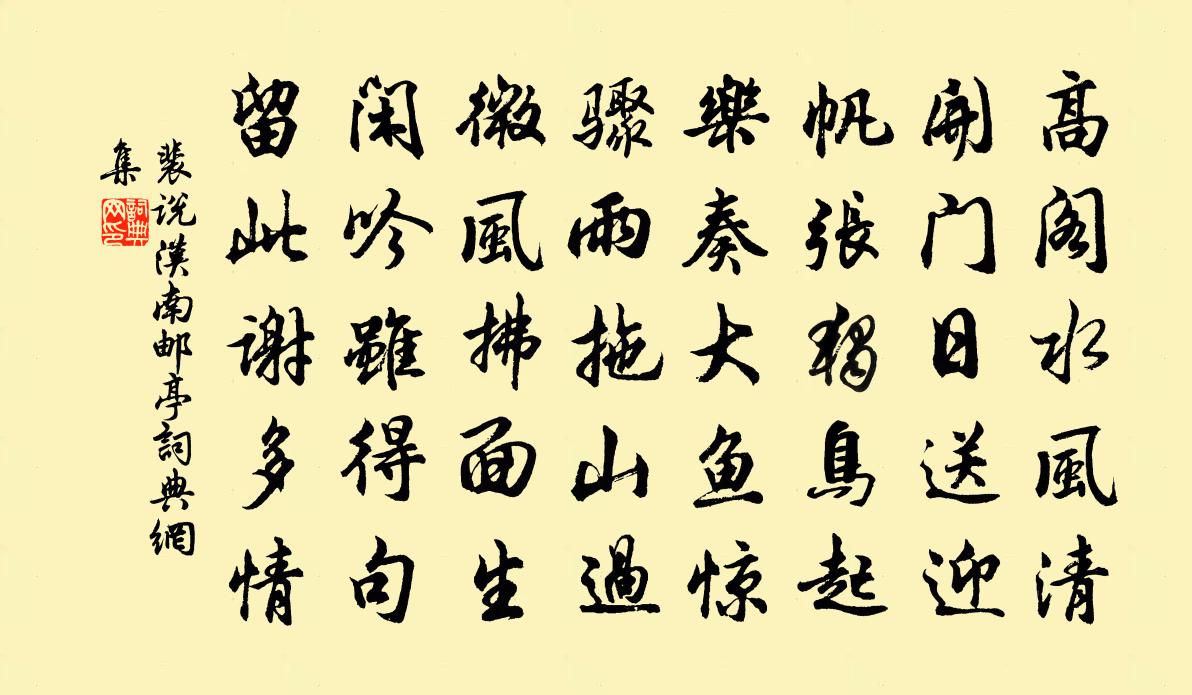 高阁水風清
開门日送迎
帆張獨鳥起
樂奏大鱼惊
骤雨拖山過
微風拂面生
闲吟雖得句
留此谢多情
裴说漢南邮亭詞典網
集
詞典
网印